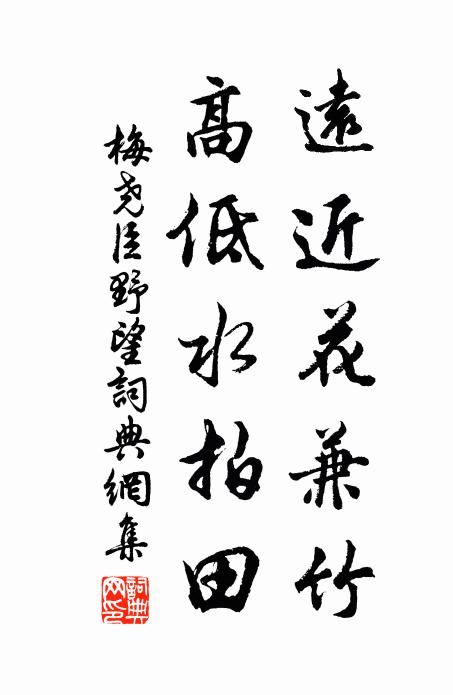 遠近花兼竹
高低水拍田
梅堯臣野望詞典網集
詞典網印